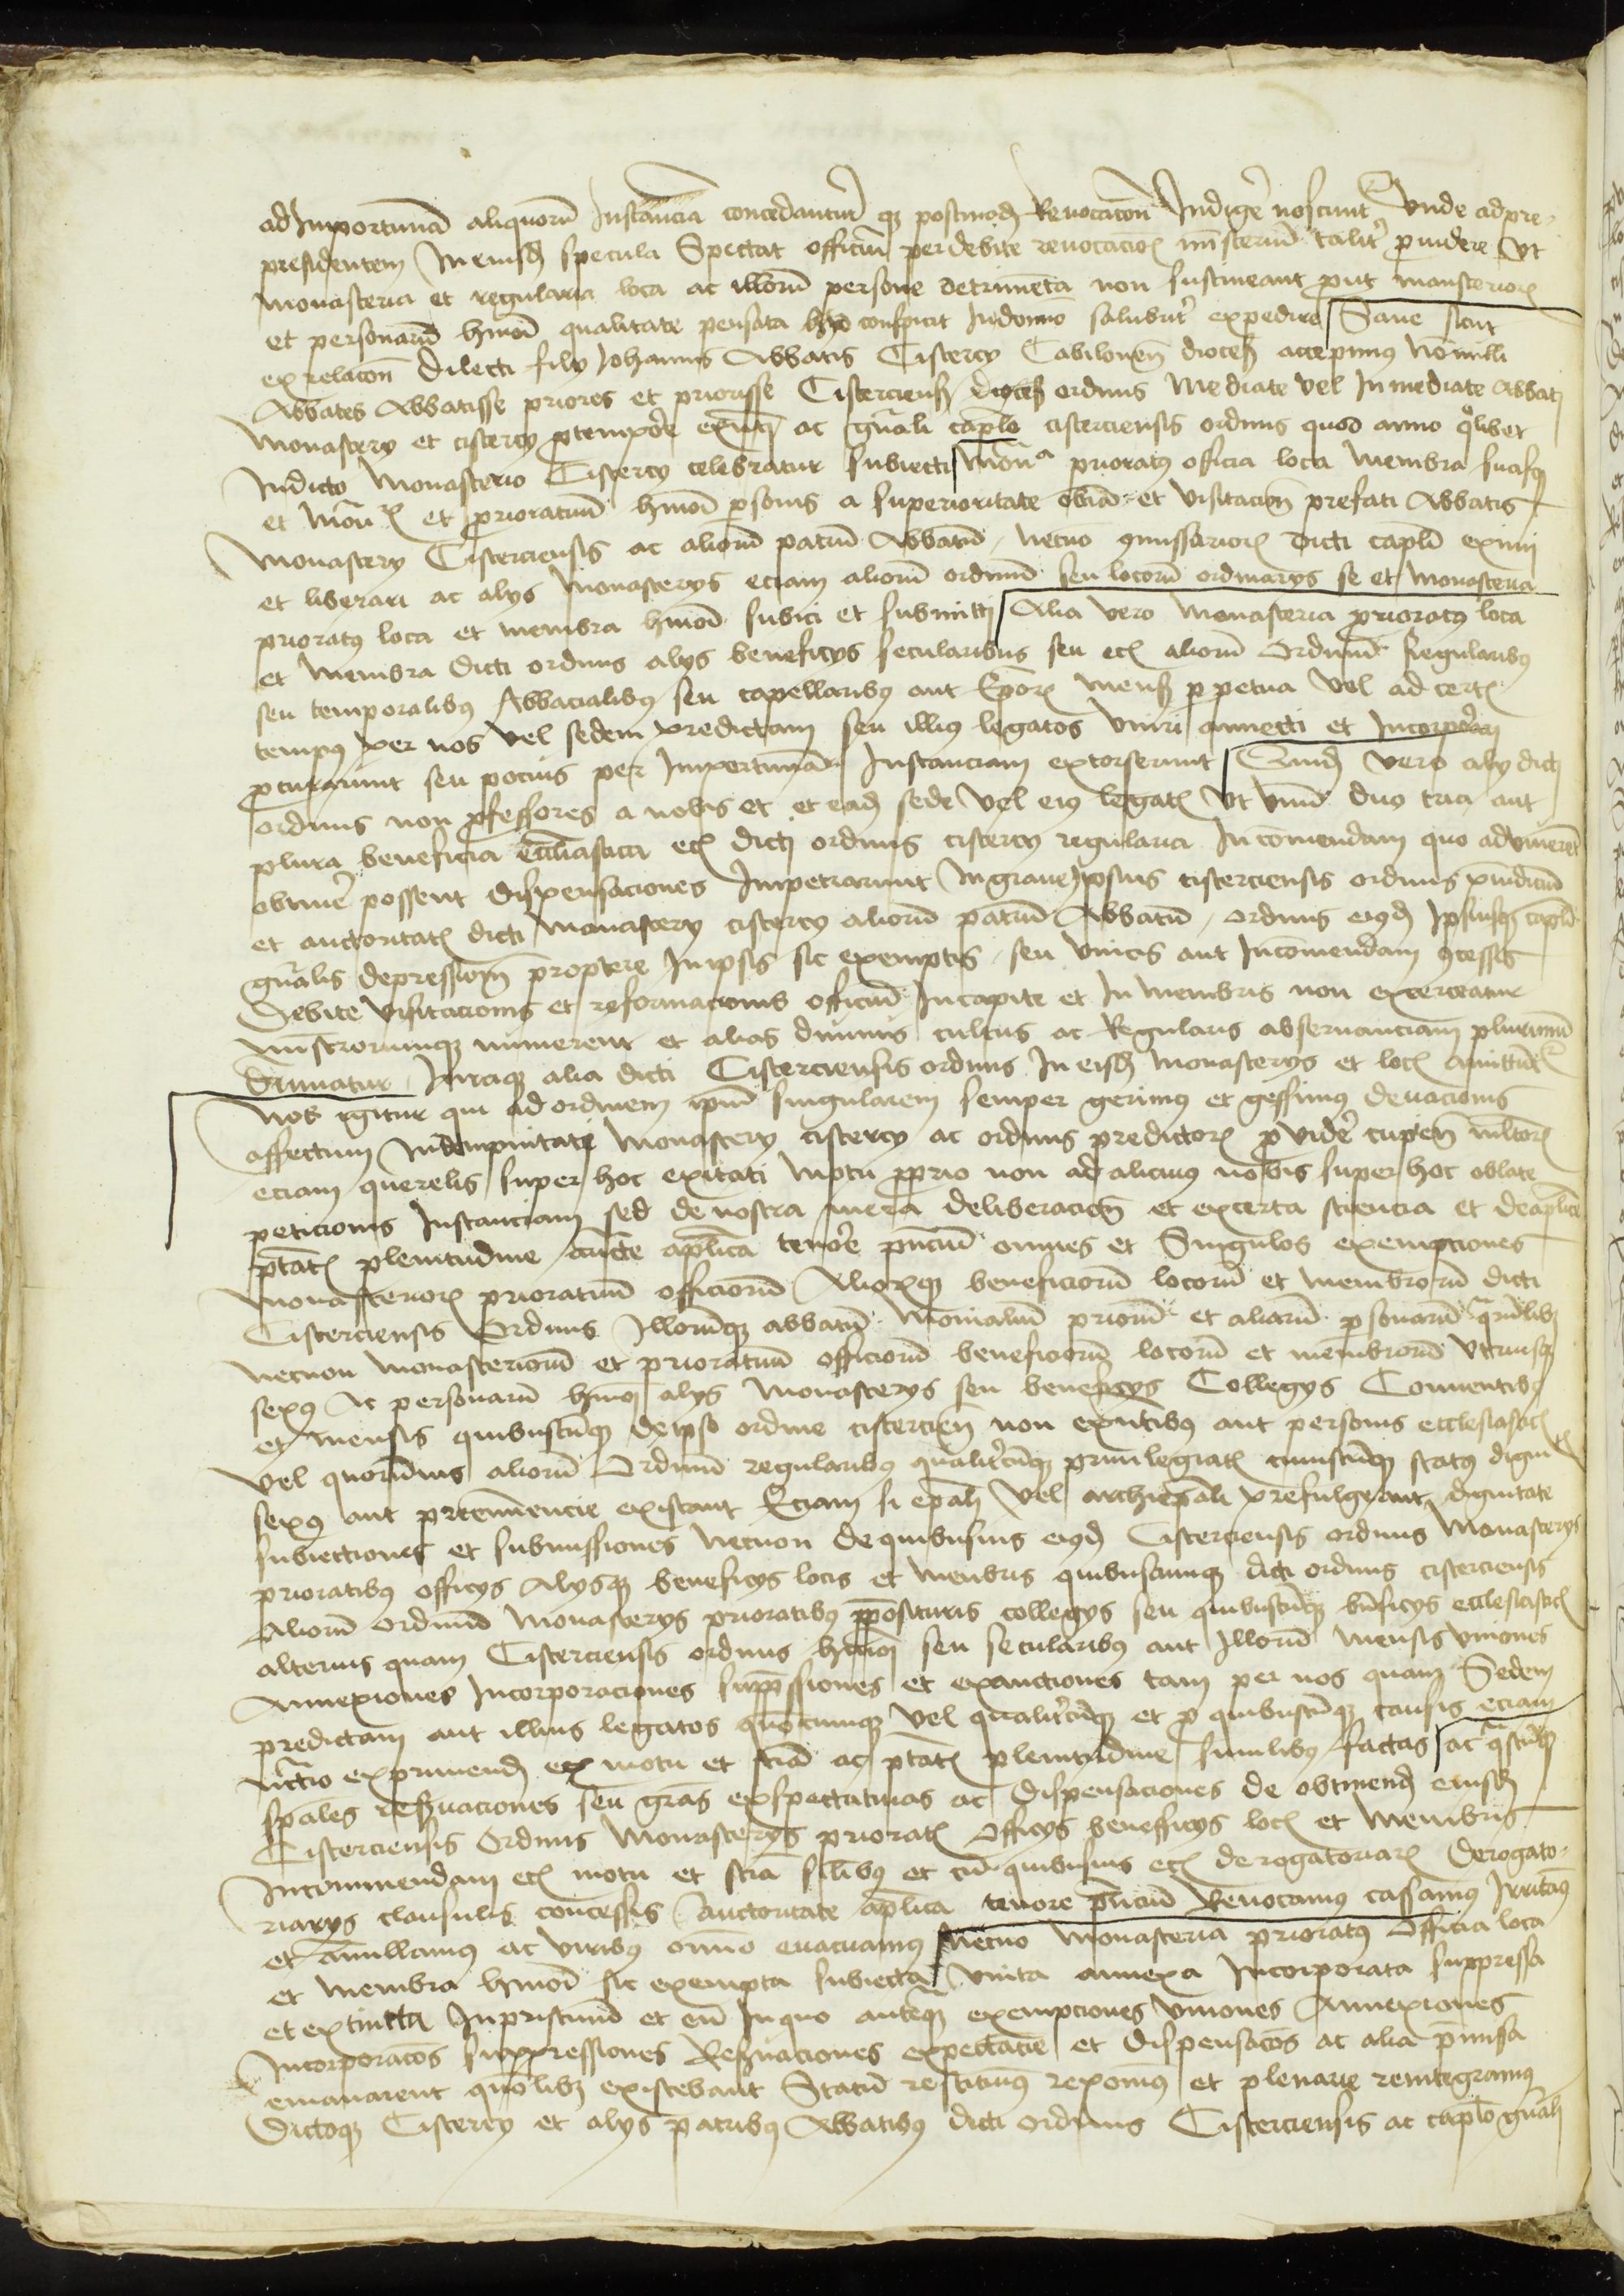 ad Importunā aliquorū Instancia concedantur q̨ postmod̨ Reuocacōn Indigē noscunt̾ Vnde ad pre-
presidentem In eiusd̨ specula Spectat officiū per debite reuocacioīs mīsteriū talit̾ prouidere Vt
monasteria et regularia loca ac illorū persone detrimenta non sustineant prout monasteriorꝝ
et personarū hmōi qualitate pensata conspicit In domīo salubrit̾ expedire Sane sicut
ex relacōn Dilecti filij Johannis Abbatis Cistercij Cabilonen̄ dioces̨ accepimus Nonnulli
Abbates Abbatisse priores et priorisse Cisterciens̨ ordinis Mediate vel In mediate Abbati
Monasterij et cistercij pro tempore exn̄ti ac gn̄ali caplo cisterciensis ordinis quod anno qlibet
In dicto Monasterio Cistercij celebratur subiecti mon̄a prioratꝯ officia loca membra
et mon̄ꝝ et prioratuū hmōi psonis a superioritate obiā et visitacion̄ prefati Abbatis
Monasterij Cisterciensis ac aliorū patrū Abbatū Necno cōmissariorꝝ dicti capli eximi
et liberari ac alijs Monasterijs eciam aliorū ordinū seu locorū ordinarijs se et monasteria
prioratꝯ loca et membra hmōi subici et submitti Alia vero Monasteria prioratꝯ loca
et Membra dicti ordinis alijs beneficijs secularibus seu ecꝫ aliorū Ordinū Regularibꝯ
seu temporalibꝯ Abbacialibꝯ seu capellaribꝯ aut Epōrꝝ mens̨ ppetua Vel ad certꝫ
tempꝯ per nos Vel sedem predictam seu illiꝯ legatos Vniri annecti et Incorporari
procurarunt seu pociꝯ per Importunā Instanciam extorserunt Quid̨ vero alij dicti
ordinis non professores a nobis et ead̨ sede Vel eiꝯ legatꝫ Vt Vnū duo tria aut
plura beneficia ecclesiastica ecꝫ dicti ordinis cistercij regularia In comendam quo aduiuerēt
obtinē possent dispensaciones Impetrarunt In graue ipsius cisterciensis ordinis p̄iudiciū
et auctoritatꝫ dicti Monasterij cistercij aliorū patrū Abbatū ordinis eiꝯd̨ Ipsiusq̨ capli
gn̄alis depression̄ propterea In ipsis sic exemptis seu Vnitis aut In comendam cōcessis
Debite Visitacionis et reformacionis officiū In capite et In membris non exerceatur
minoratur et alias diuinus cultus ac Regularis obseruanciam plurimū
diminuatur Iuraq̨ alia dicti Cisterciensis ordinis In eisd̨ monasterijs et locꝫ amittunt̾
Nos igitur qui ad ordinem ip̄m singularem semper gerimꝯ et gessimꝯ deuocionis
affectum Indempnitati Monasterij cistercij ac ordinis predictorꝝ prouidē cupien̄ multorꝝ
eciam querelis super hoc exitati motu proprio non ad alicuius nobis super hoc oblate
peticionis Instanciam sed de nostra mera deliberacion̄ et ex certa sciencia et de aplice
ptatꝫ plenitudine auctē aplica tenore pn̄ciū omnes et Singulos exempciones
Monasteriorꝝ prioratuū officiorū Aliorꝝq̨ beneficiorū locorū et membrorū dicti
Cisterciensis Ordinis Illorūq̨ abbatū Monialiū priorū et aliarū psonarū
Necnon Monasteriorū et prioratuū officiorū beneficiorū locorū et membrorū Vtriusq̨
sexꝯ Ac personarū hmōi alijs Monasterijs seu beneficijs Collegijs Conuentibꝯ
et mensis quibuscūq̨ de ipso ordine cistercien̄ non exn̄tibꝯ aut personis ecclesiasticꝫ
Vel quorūuis aliorū Ordinū regularibꝯ qualit̾cūq̨ priuilegiatꝫ cuiuscūq̨ statꝯ dignitꝫ
sexꝯ aut preeminēcie existant Eciam si epāli Vel archiepāli prefulgeant dignitate
subiectiones et submissiones Necnon de quibusuis eiꝯd̨ Cisterciensis ordinis Monasterijs
prioratibꝯ officijs Alijsq̨ beneficijs locis et membris quibuscumq̨ dicti ordinis cisterciensis
Aliorū ordinū Monasterijs prioratibꝯ pposituris collegijs seu quibuscūq̨ bn̄ficijs ecclesiasticꝫ
alterius quam Cisterciensis ordinis hmōi seu secularibꝯ aut Illorū mensis Vniones
Annexiones Incorporaciones suppssiones et extinctiones tam per nos quam Sedem
predictam aut illius legatos quocumq̨ Vel qualit̾cūq̨ et p quibuscūq̨ causis eciam
exprimend̨ ex motu et sciā ac ptatꝫ plenitudine similibꝯ factas ac
spāles reseruaciones seu grās exspectatiuas ac Dispensaciones de obtinend̨ eiusd̨
Cisterciensis Ordinis Monasterijs prioratꝫ Officijs beneficijs locꝫ et Membris
In commendam ecꝫ motu et sciā silibꝯ et cū quibusuis ecꝫ derogatoriarꝝ Derogato-
riarijs clausulis concessis auctoritate aplica tenore pn̄ciū Reuocamus cassamꝯ Irritamꝯ
et annullamꝯ ac Viribꝯ omīno euacuamꝯ Necno Monasteria prioratꝯ Officia loca
et membra hmōi sic exempta subiecta Vnita annexa Incorporata suppressa
et extincta In pristinū et eū In quo anteq̨ exempciones Vniones Annexiones
Incorporacōs Suppressiones Reseruaciones expectatiue et dispensacōs ac alia p̄missa
emanarent quolibꝫ existebant Statū restituimꝯ reponimꝯ et plenarie reintegramꝯ
Dictoq̨ Cistercij et alijs patribꝯ Abbatibꝯ dicti ordinis Cisterciensis ac caplo gn̄ali